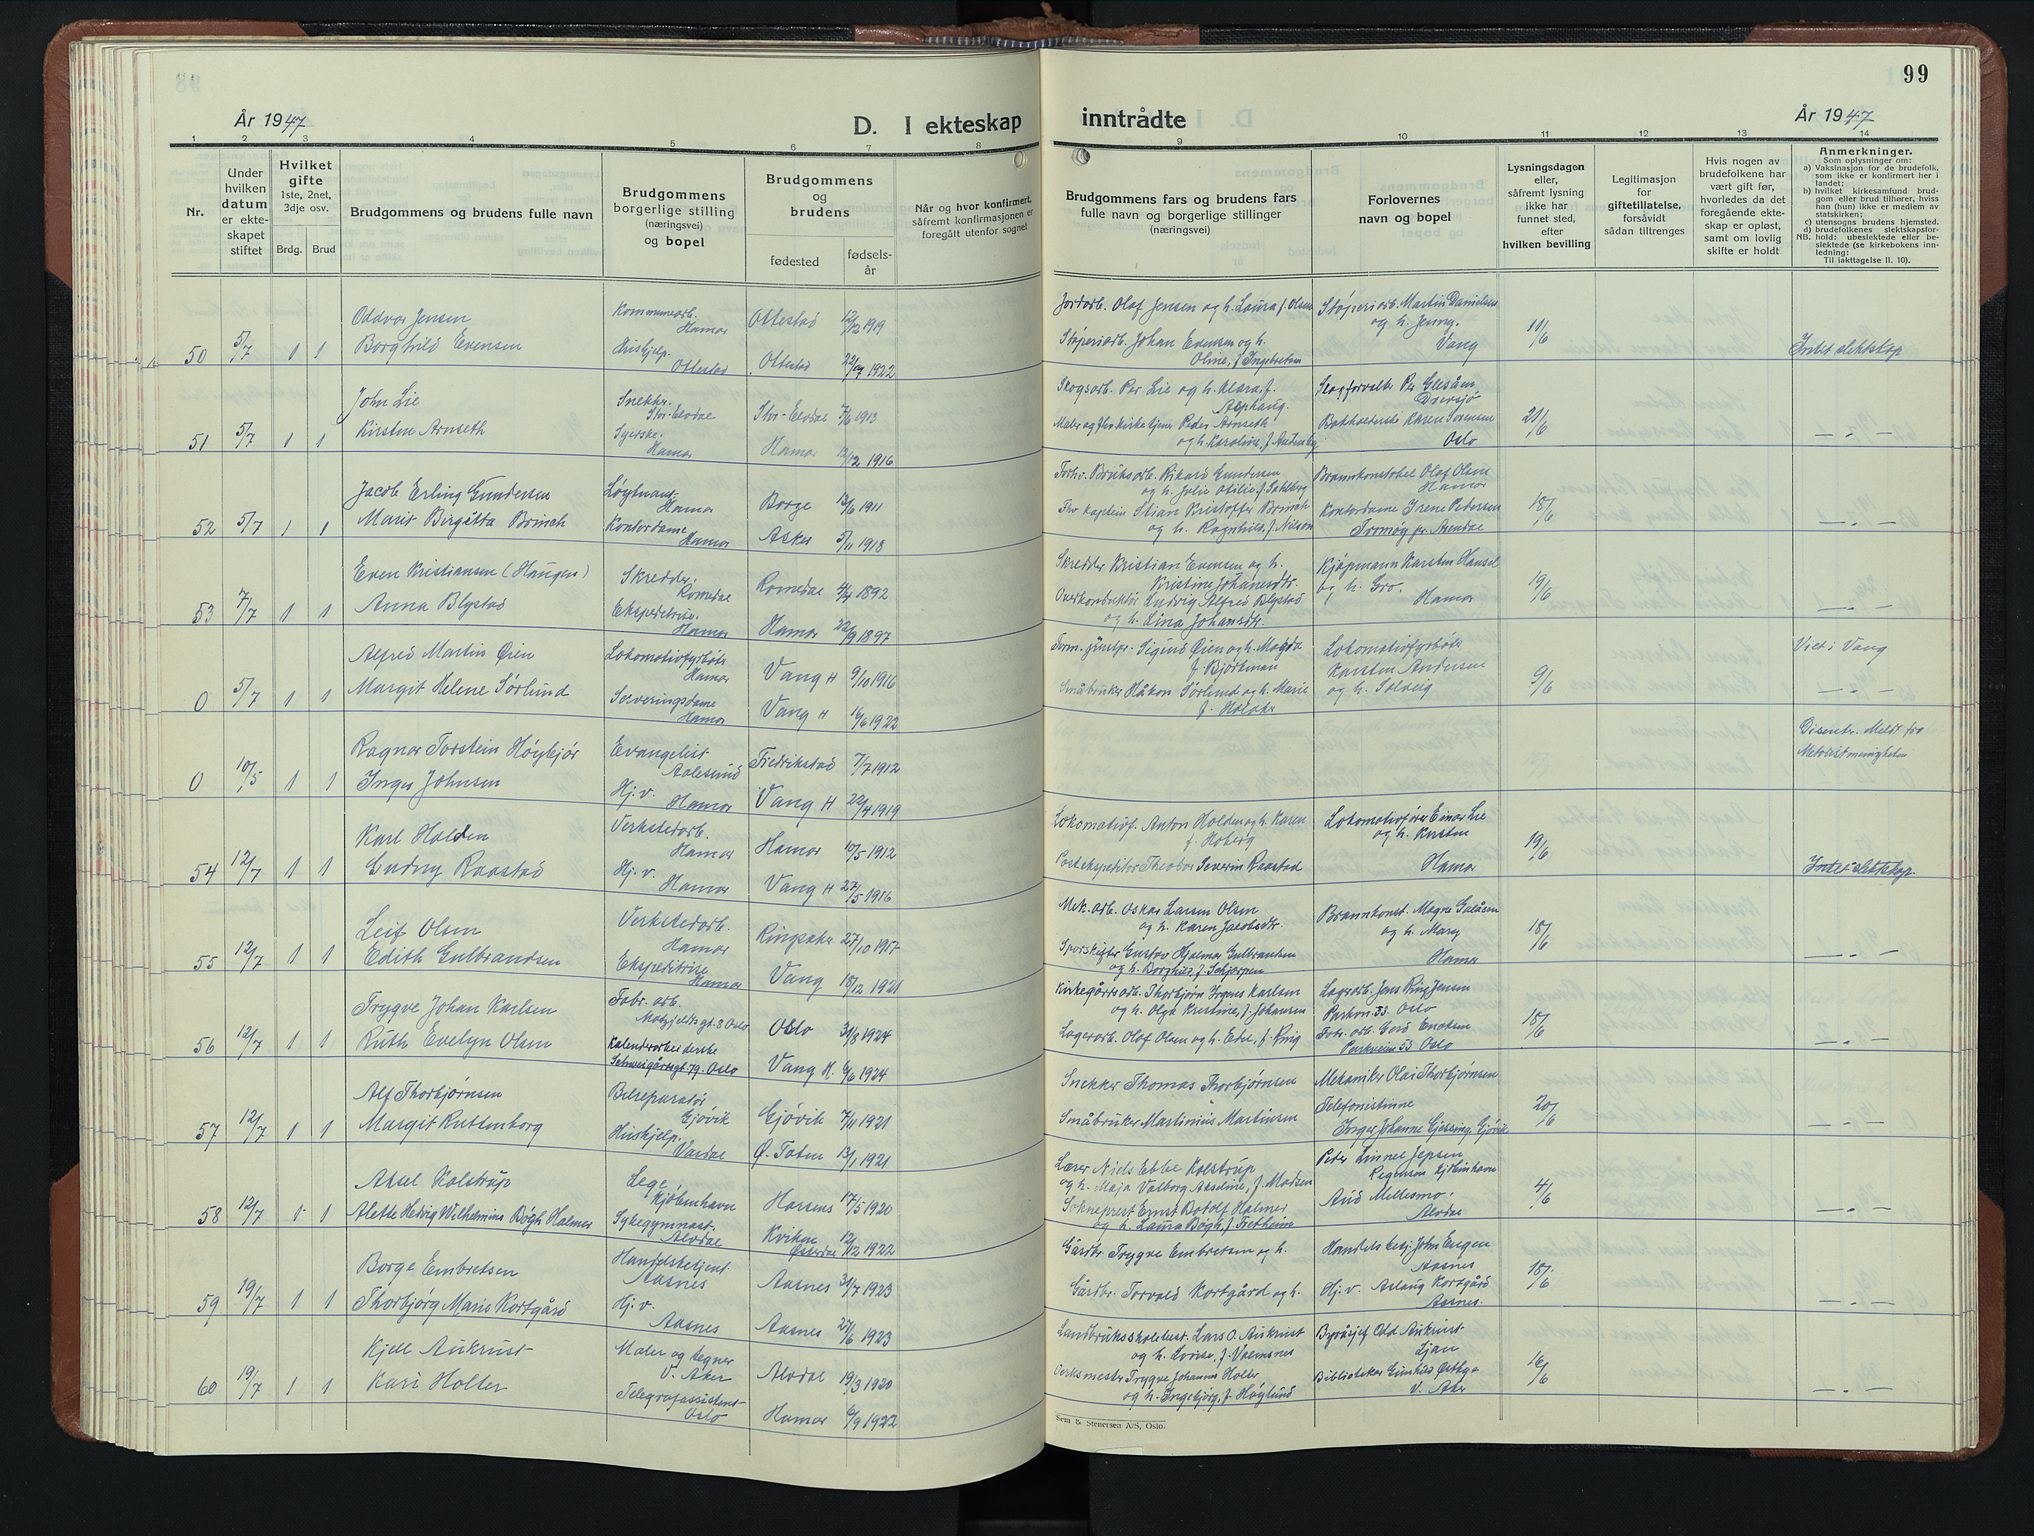 99
År 1947
D. I ekteskap
inntrådte
År 1947
1 2 3 4 5 6 7 8 9 10 11 12 13 14
Nr.
Under hvilken datum er ekteskapet stiftet
Hvilket gifte 1ste, 2net, 3dje osv.
Brdg. Brud
Brudgommens og brudens fulle navn
Brudgommens borgerlige stilling (næringsvei) og bopel
Brudgommens og brudens
fødested
fødsels-år
Når og hvor konfirmert, såfremt konfirmasjonen er foregått utenfor sognet
Brudgommens fars og brudens fars fulle navn og borgerlige stillinger (næringsvei)
Forlovernes navn og bopel
Lysningsdagen eller, såfremt lysning ikke har funnet sted, efter hvilken bevilling
Legitimasjon for giftetillatelse, forsåvidt sådan tiltrenges
Hvis nogen av brudefolkene har vært gift før, hvorledes da det foregående ekteskap er opløst, samt om lovlig skifte er holdt
Anmerkninger.
Som oplysninger om:
a) Vaksinasjon for de brudefolk, som ikke er konfirmert her i landet;
b) hvilket kirkesamfund brudgom eller brud tilhører, hviss han (hun) ikke er medlem av statskirken;
c) utensogns brudens hjemsted.
d) brudefolkenes slektskapsforhold: ubeslektede eller beslektede (se kirkebokens innledning:
NB.
Til iakttagelse II. 10).
Oddvar Jensen Kommunearb. Hamar Ottestad 12/12 1919 Jordarb. Olaf Jensen og h. Laura f. Olsen Støperiarb. Martin Danielsen og h. Jenny.
50 5/7 1 1 Borghild Evensen Hushjelp. Ottestad Ottestad 1922 Støperiarb. Johan Evensen og h. Oline, f. Ingebretsen Vang 11/6 Intet slektskap
John Lie Snekker. Stor-Elvdal Stor-Elvdal 7/6 1913 Skogsarb. Per Lie og h. Klara, f. Alphaug. Skogforvalt. Per Glesåen
51 5/7 1 1 Kirsten Arnseth Syerske. Hamar Hamar 1916 Peder Arnseth og h. Karoline, f. Karen Sørensen Oslo 21/6 — „ —
Jacob Erling Gundersen Løytnant. Hamar Borge 13/6 1911 Rikard Gundersen Brannkonstabel Olaf Olsen Hamar
52 5/7 1 1 Marit Birgitta Brinch Kontordame Hamar Asker 5/11 1918 Kristoffer Brinch og h. Ragnhild, f. Nilsen Kontordame Irene Pedersen Tromøy pr. Arendal 18/6 — „ —
Even Kristiansen (Haugen) Skredder. Romedal Romedal 4/4 1892 Skredder Kristian Evensen og h. Kristine Johanesdtr. Kjøpmann Karsten Hansel og h. Gro.
53 7/7 1 1 Anna Blystad Ekspeditrise. Hamar Hamar 22/9 1897 Overkonduktør Ludvig Alfred Blystad og h. Lina Johansdtr. Hamar 19/6 — „ —
Alfred Martin Øien Lokomotivfyrbøter Hamar Vang H 9/10 1916 Sigurd Øien og h. Magda f. Bjørkman Lokomotivfyrbøter Karsten Andersen og h. Solveig Viet i Vang
0 5/7 1 1 Margit Helene Sørlund Serveringsdame Hamar Vang H 16/6 1922 Småbruker Håkon Sørlund og h. Marie 9/6 — „ —
Ragnar Torstein Høybjør Evangelist Aalesund Fredrikstad 7/7 1912 Dissenter. Meldt fra Metodistmenigheten
0 10/5 1 1 Inger Johnsen Hj. v. Hamar Vang H 22/4 1919
Karl Holden Verkstedarb. Hamar Hamar 10/5 1912 Lokomotivf. Anton Holden og h. Karen f. Hoberg Lokomotivfører Einar Lie og h. Kirsten
54 12/7 1 1 Gudny Raastad Hj. v. Hamar Vang H 27/5 1916 Postekspeditør Theodor Severin Raastad Hamar 19/6 Intet slektskap.
Leif Olsen Verkstedarb. Hamar Ringsaker 27/10 1917 Mek. arb. Oskar Larsen Olsen og h. Karen Jacobsdtr. Brannkonst. Magne Galåsen og h. Mary
55 12/7 1 1 Edith Gulbrandsen Ekspeditrise Hamar Vang 18/12 1921 Sporskifter Gustav Hjalmar Gulbrandsen og h. Borghild, f. Schjerpen Hamar 18/6 — „ —
Trygve Johan Karlsen Fabr. arb. Oslo Oslo 31/8 1924 Kirkegårdsarb. Thorbjørn Karlsen og h. Olga Kristine, f. Johansen Lagerarb. Jens Ring Jensen Oslo
56 12/7 1 1 Ruth Evelyn Olsen Kalenderarbeiderske Schweigårdsgt. 79. Oslo Vang H. 6/6 1924 Lagerarb. Olaf Olsen og h. Edel, f. Ring Fabr. arb. Gerd Parkveien 53 Oslo 18/6 — „ —
Alf Thorbjørnsen Bilreparatør Gjøvik Gjøvik 7/11 1921 Snekker Thomas Thorbjørnsen Mekaniker Olai Thorbjørnsen
57 12/7 1 1 Margit Ruttenborg Hushjelp. Vardal Ø. Toten 13/1 1921 Småbruker Martinius Martinsen Telefonistinne Inger Johanne Gjersing, Gjøvik 20/6 — „ —
Aksel Kolstrup Lege, Kjøbenhavn Horsens 17/5 1920 Lærer Niels Ebbe Kolstrup og h. Maja Valborg Akseline, f. Madsen Peter Linnel Jepsen Regensen Kjøbenhavn
58 12/7 1 1 Alette Hedvig Wilhelmine Bøgh Halmer Sykegymnast. Alvdal Kvikne Østerdal 12/12 1922 Sokneprest Ernst Botolf Halmer og h. Laura Bøgh, f. Fretheim Aud Mellesmo. Alvdal 4/6 — „ —
Borge Embretsen Handelsbetjent Aasnes Aasnes 31/7 1923 Gårdbr. Trygve Embretsen og h. Handelsbesj. John Engen Aasnes
59 19/7 1 1 Thorbjørg Marie Kortgård Hj. v. Aasnes Aasnes 27/6 1923 Gårdbr. Torvald Kortgård og h. Hj. v. Aslaug Kortgård Aasnes. 18/6 — „ —
Kjell Aukrust Maler og tegner V. Aker Alvdal 19/3 1920 Landbruksskolebest. Lars O. Aukrust og h. Lovise, f. Valmsnes Byråsjef Odd Aukrust Ljan
60 19/7 1 1 Kari Holter Telegrafassistent Oslo Hamar 6/9 1922 Verksmester Trygve Johannes Holter og h. Ingebjørg, f. Høglund Bibliotekar Gunhild Østbye V. Aker 16/6 — „ —
Sem & Stenersen A/S, Oslo.